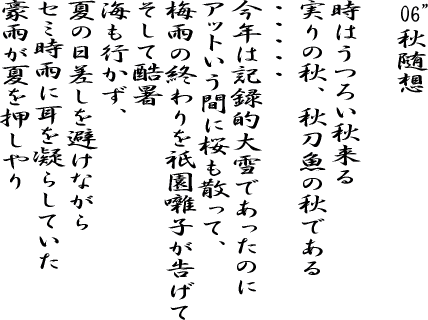 06”秋随想
時はうつろい秋来る
実りの秋、秋刀魚の秋である
・・・・・
今年は記録的大雪であったのに
アットいう間に桜も散って、
梅雨の終わりを祇園囃子が告げて
そして酷暑
海も行かず、
夏の日差しを避けながら
セミ時雨に耳を凝らしていた
豪雨が夏を押しやり